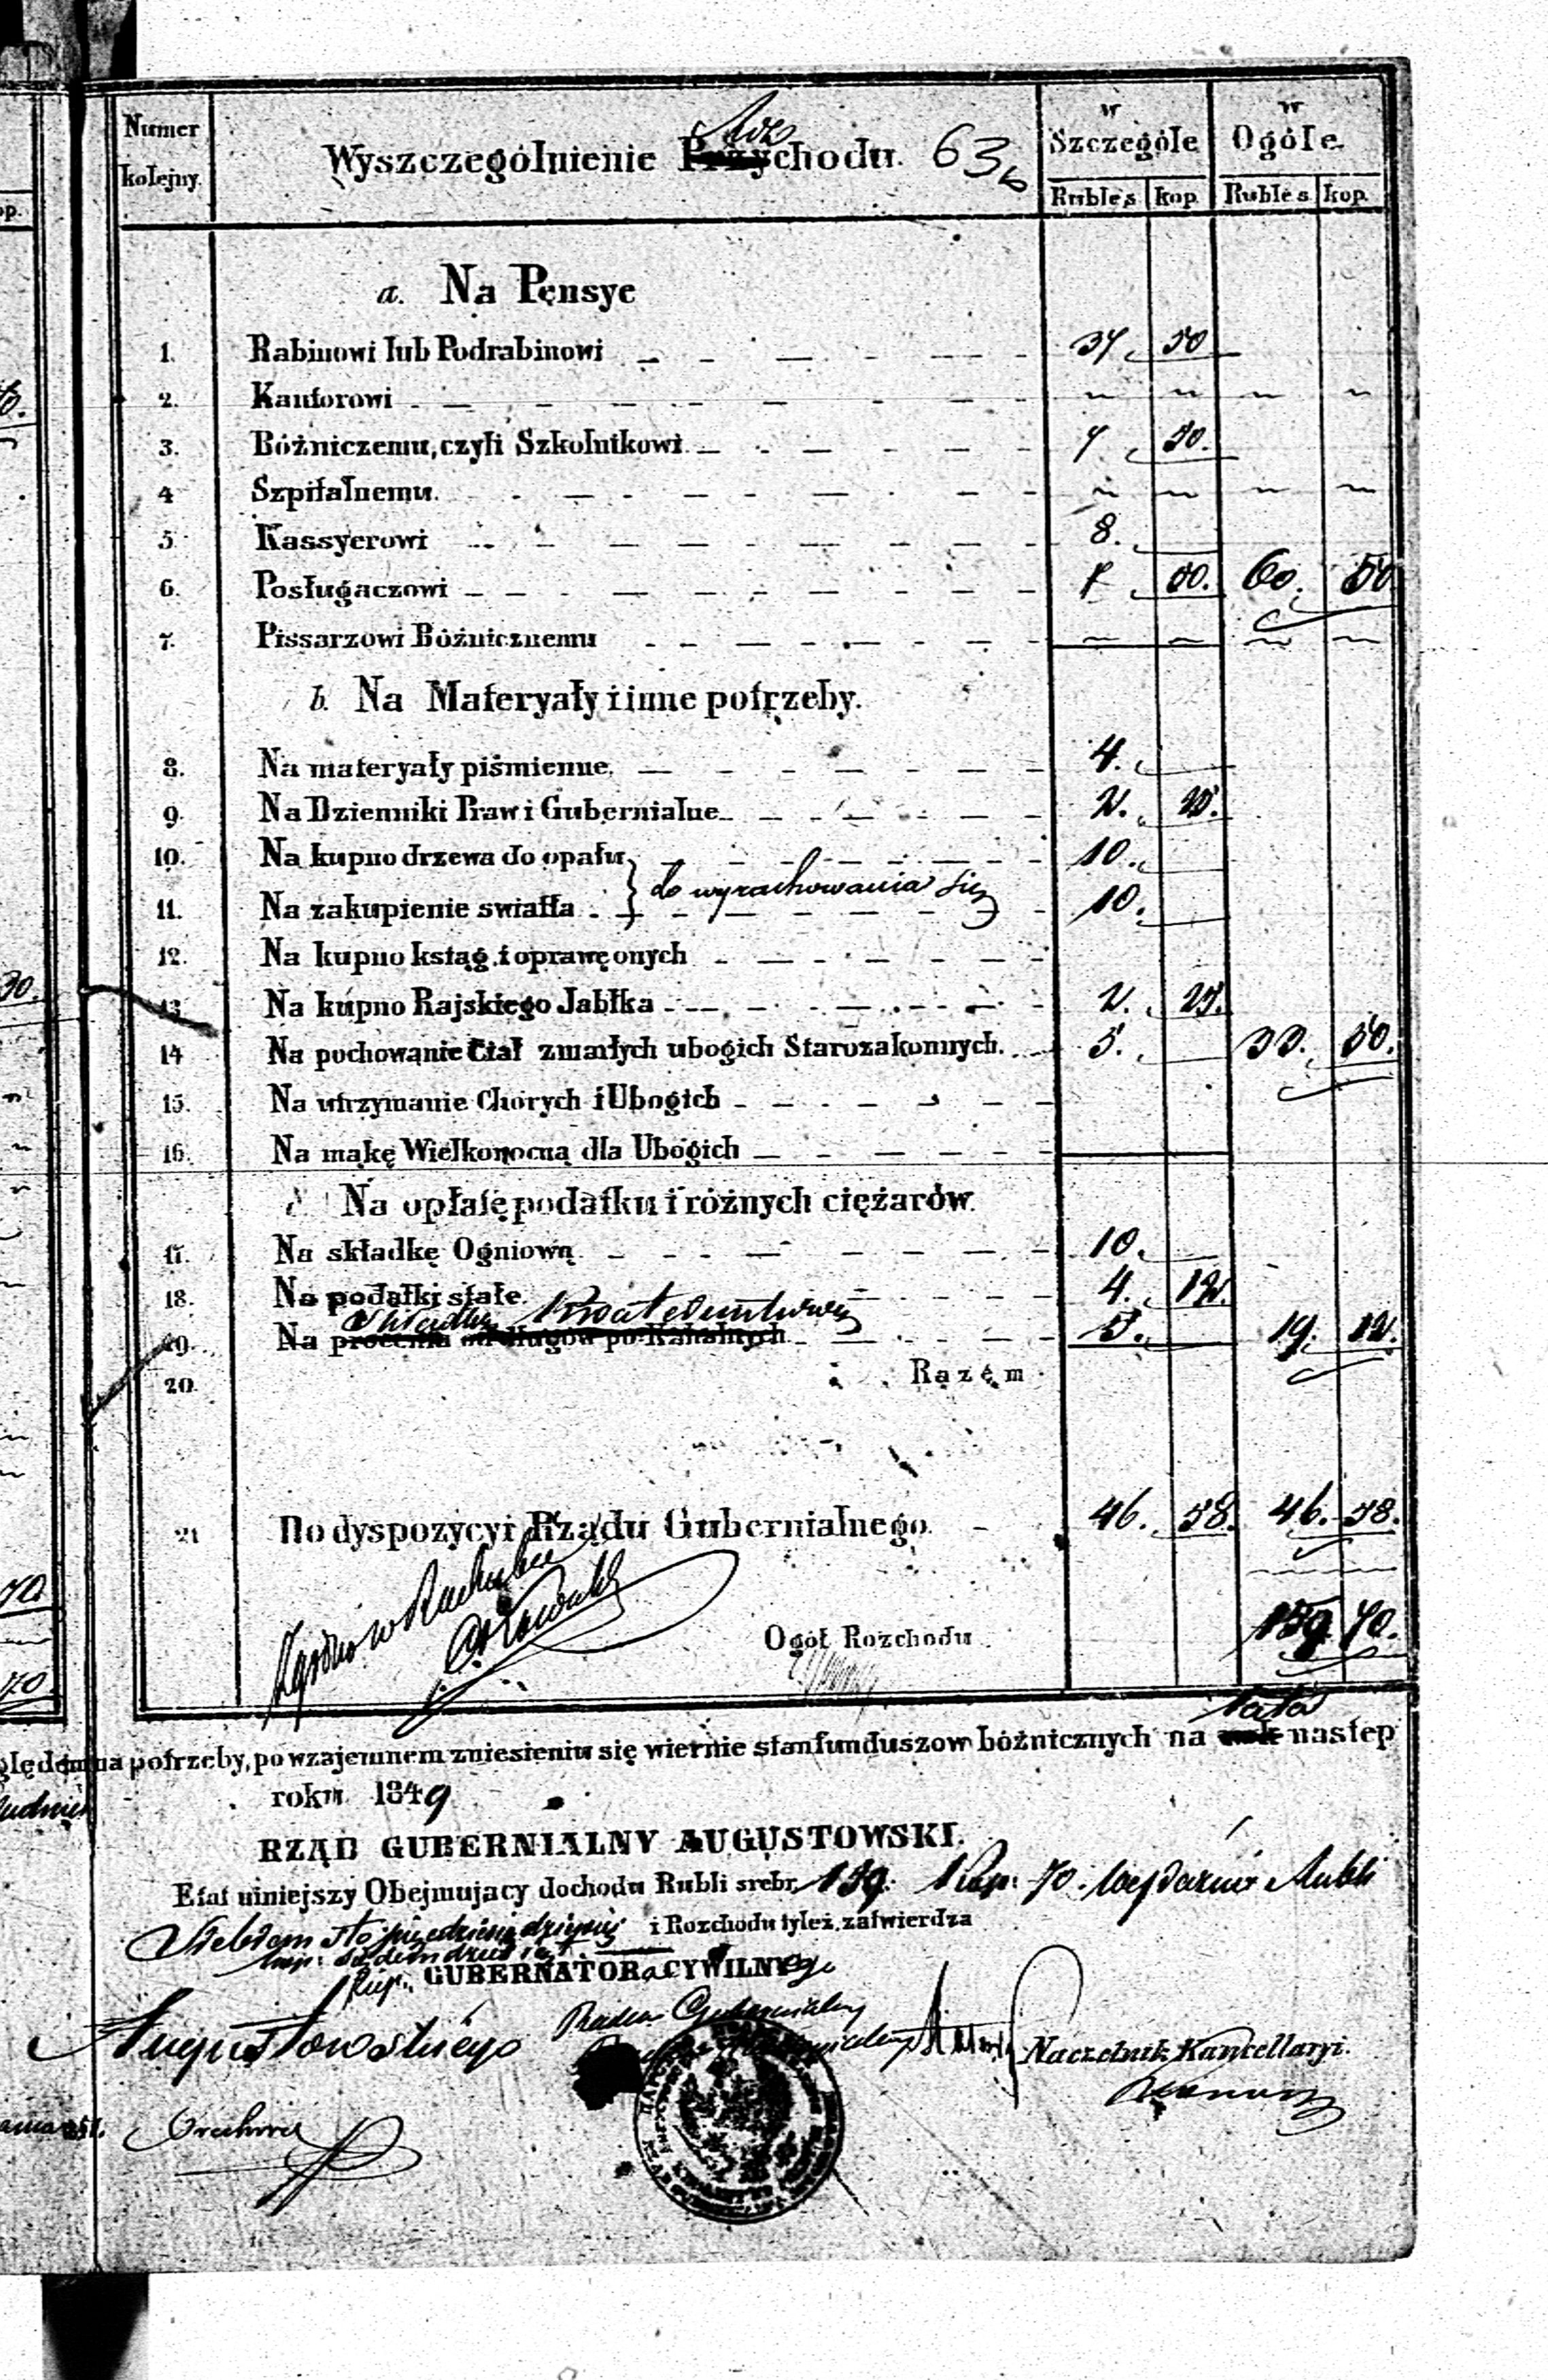 Numer
kolejny.
Wyszczególnienie Roz Przychodu. 63b
w
Szczególe
w
Ogóle.
Rubles kop. Rubles kop.
a. Na Pensye
1. Rabinowi lub Podrabinowi 37. 50
2. Kantorowi
3. Bóżniczemu, czyli Szkolnikowi 7. 50.
4 Szpitalnemu.
5. Kassyerowi 8.
6. Posługaczowi 50. 60. 50
7. Pissarzowi Bóżnicznemu
b. Na Materyały i inne potrzeby.
8. Na materyały piśmienne. 4.
9. Na Dzienniki Praw i Gubernialne 2. 25.
10. Na kupno drzewa do opału 10.
do wyrachowania się
11. Na zakupienie swiatła 10.
12. Na kupno ksiąg i oprawę onych
13. Na kupno Rajskiego Jabłka 2. 25.
14 Na pochowanie Ciał zmarłych ubogich Starozakonnych. 5. 33. 50.
15. Na utrzymanie Chorych i Ubogich
16. Na mąkę Wielkonocną dla Ubogich
Na opłatę podatku i różnych ciężarów.
17. Na składkę Ogniową 10.
18. Na podatki stałe. 4. 12.
Składkę Kwaterunkową
19. Na procenta od długów po-Kahalnych 5. 19. 12.
20. Razem
21 Do dyspozycyi Rządu Gubernialnego. 46. 58. 46. 58.
Zgodno w Rachubie
Ogół Rozchodu 159. 70.
lata
ględem na potrzeby, po wzajemnem zniesieniu się wiernie stanfunduszow bóżnicznych na rok nastep
roku 1849
RZĄD GUBERNIALNY AUGUSTOWSKI.
Etat niniejszy Obejmujacy dochodu Rubli srebr. 159. kop. 70. wyraznie Rubli
Srebrem sto pięćdziesiąt dziewięć i Rozchodu tyleż, zatwierdza
kop. siedemdziesiąt.
GUBERNATORA CYWILNEgo
Augustowskiego
Radca Gubernialny
Naczelnik Kancellaryi.